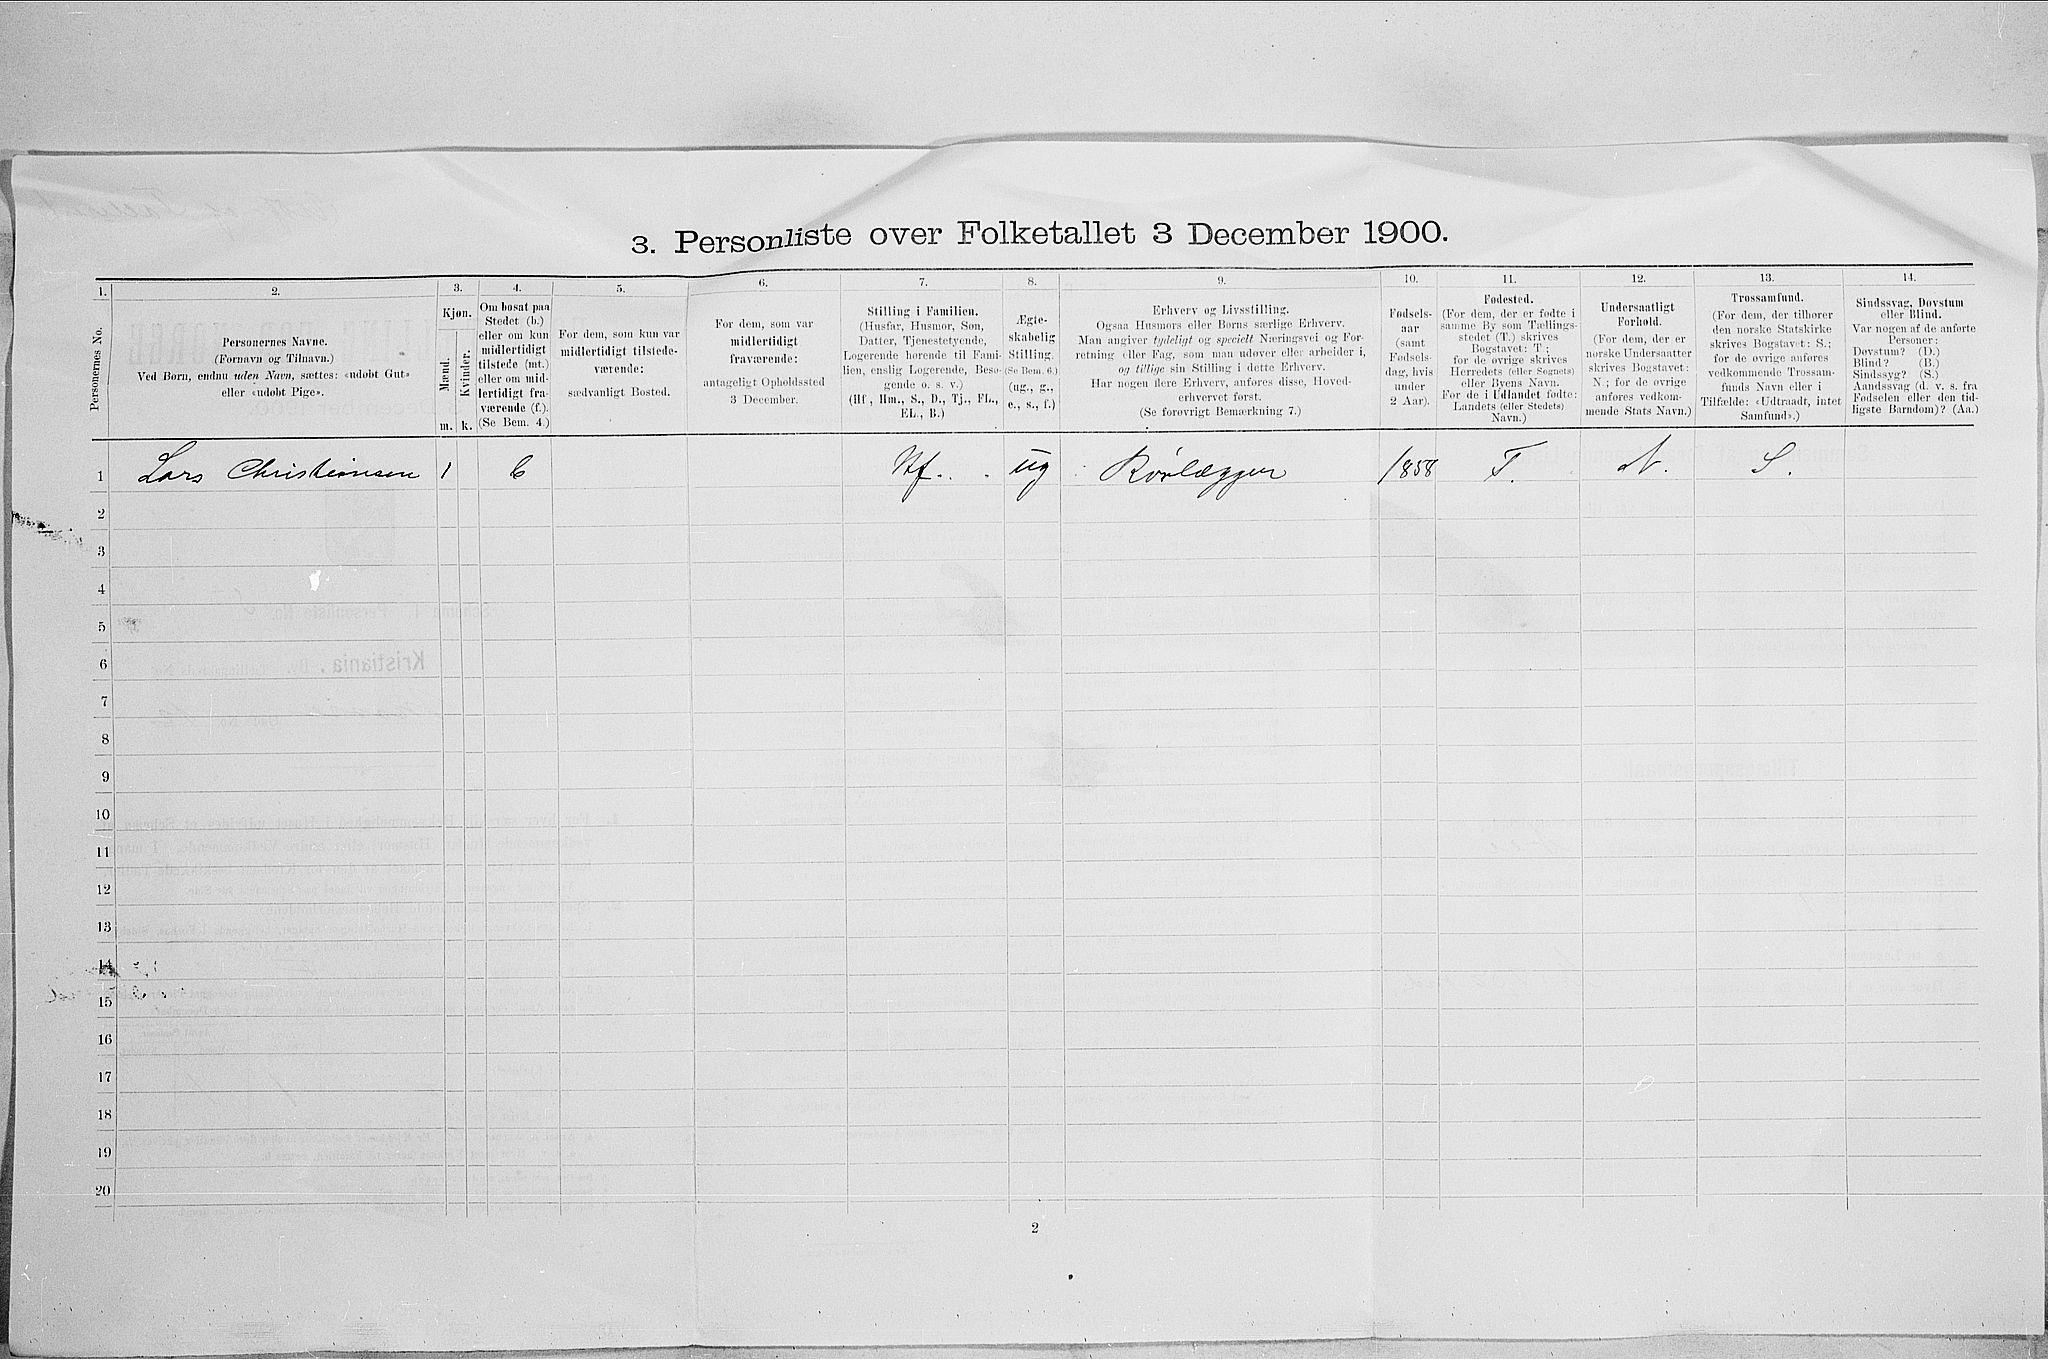 3. Personliste over Folketallet 3 December 1900.
1. 2. 3. 4. 5. 6. 7. 8. 9. 10. 11. 12. 13. 14.
Personernes No.
Personernes Navne.
(Fornavn og Tilnavn.)
Ved Børn, endnu uden Navn, sættes: «udobt Gut»
eller «udobt Pige».
Kjøn.
Mænd.
Kvinder.
m. k.
Om bosat paa
Stedet (b.)
eller om kun
midlertidigt
tilstede (mt.)
eller om mid-
lertidigt fra-
værende (f.).
(Se Bem. 4.)
For dem, som kun var
midlertidigt tilstede-
værende:
sædvanligt Bosted.
For dem, som var
midlertidigt
fraværende:
antageligt Opholdssted
3 December.
Stilling i Familien.
(Husfar, Husmor, Søn,
Datter, Tjenestetyende,
Logerende hørende til Fami-
lien, enslig Logerende, Besø-
gende o. s. v.)
(Hf, Hm., S., D., Tj., FL.,
EL., B.)
Ægte-
skabelig
Stilling.
(Se Bem. 6.)
(ug., g.,
e., s., f.)
Erhverv og Livsstilling.
Ogsaa Husmors eller Børns særlige Erhverv.
Man angiver tydeligt og specielt Næringsvei og For-
retning eller Fag, som man udøver eller arbeider i,
og tillige sin Stilling i dette Erhverv.
Har nogen flere Erhverv, anføres disse, Hoved-
erhvervet først.
(Se forøvrigt Bemærkning 7.)
Fødsels-
aar
(samt
Fødsels-
dag, hvis
under
2 Aar).
Fødested.
(For dem, der er fødte i
samme By som Tællings-
stedet (T.) skrives
Bogstavet: T ;
for de øvrige skrives
Herredets (eller Sognets)
eller Byens Navn.
For de i Udlandet fødte:
Landets (eller Stedets)
Navn.)
Undersaatligt
Forhold.
(For dem, der er
norske Undersaatter
skrives Bogstavet:
N.; for de øvrige
anføres vedkom-
mende Stats Navn.)
Trossamfund.
(For dem, der tilhører
den norske Statskirke
skrives Bogstavet: S.;
for de øvrige anføres
vedkommende Trossam-
funds Navn eller i
Tilfælde: «Udtraadt, intet
Samfund».)
Sindssvag, Døvstum
eller Blind.
Var nogen af de anførte
Personer:
Døvstum? (D.)
Blind? (B.)
Sindssyg? (S.)
Aandssvag (d. v. s. fra
Fødselen eller den tid-
ligste Barndom)? (Aa.)
1 Lars Christiansen 1 b Hf. ug Rørlægger 1858 T. N. S.
2
3
4
5
6
7
8
9
10
11
12
13
14
15
16
17
18
19
20
2